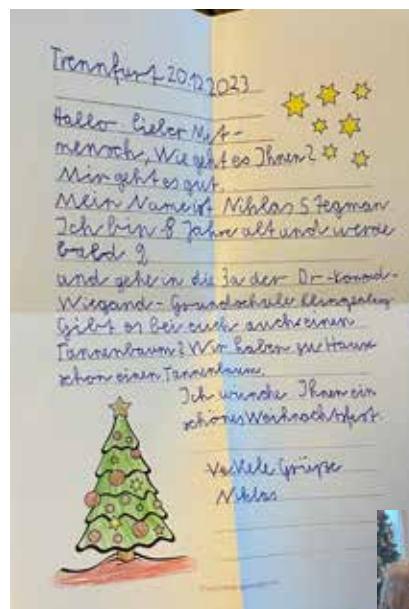 Trennfurt 20.12.2023
Hallo lieber Mit-
mensch, Wie geht es Ihnen?
Mir geht es gut.
Mein Name ist Niklas Stegman
Ich bin 8 Jahre alt und werde
bald 9
und gehe in die 3a der Dr-Konrad-
Wiegand-Grundschule Klingenberg
Gibt es bei euch auch einen
Tannenbaum? Wir haben zu Hause
schon einen Tannenbaum.
Ich wünsche Ihnen ein
schönes Weihnachtsfest.
Grüße
Niklas